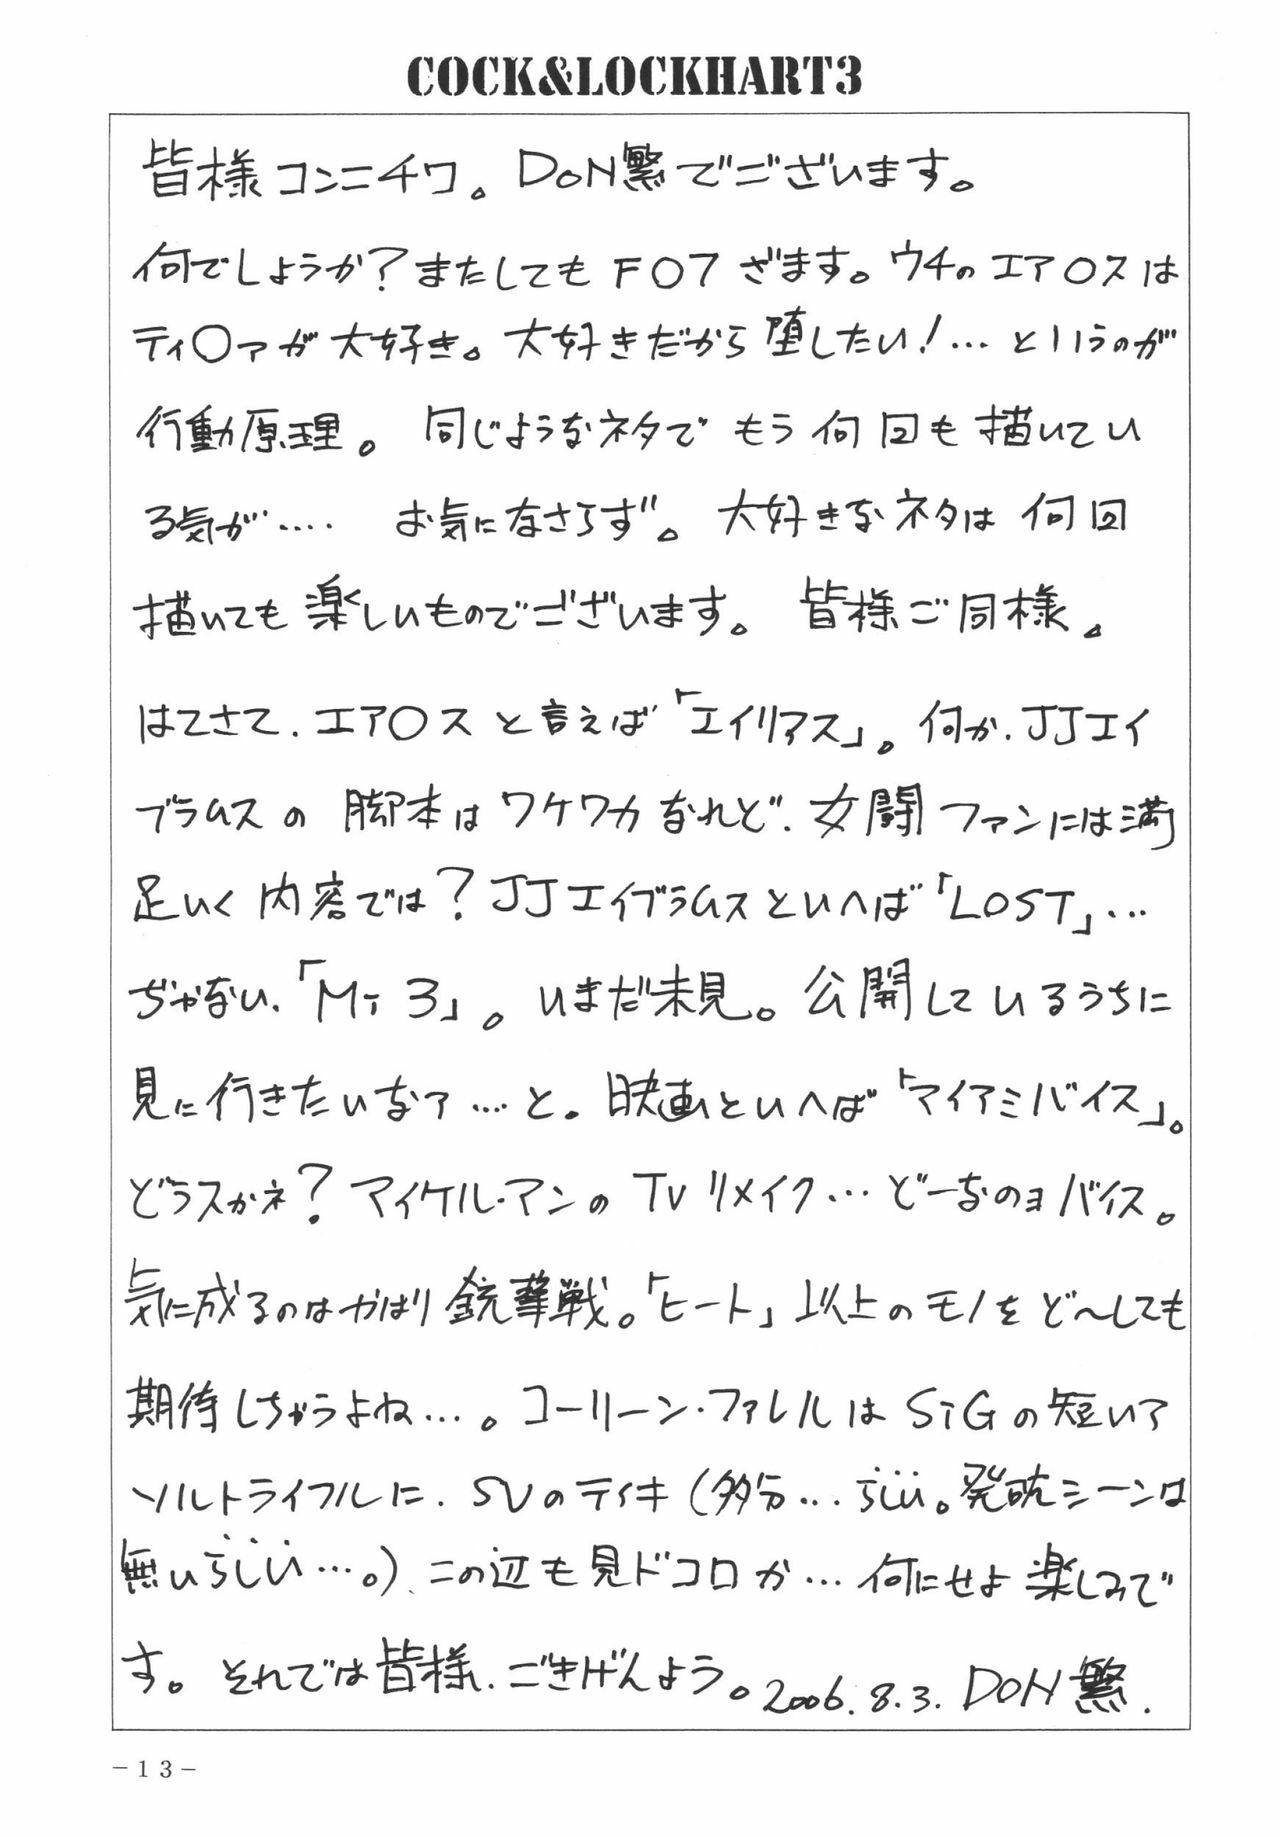 COCK&LOCKHART3
皆様コンニチワ。DoN繁でございます。
何でしょうか？またしてもF〇7ざます。ウチのエア〇スは
ティ〇ァが大好き。大好きだから堕したい！…というのが
行動原理。同じようなネタでもう何回も描いてい
る気が…. お気になさらず。大好きなネタは何回
描いても楽しいものでございます。皆様ご同様。
はてさて、エア〇スと言えば「エイリアス」。何か、JJエイ
ブラムスの脚本はワケワカなれど、女闘ファンには満
足いく内容では？JJエイブラムスといへば「LOST」…
ぢゃない、「Mi3」。いまだ未見。公開しているうちに
見に行きたいなァ…と。映画といへば「マイアミバイス」。
どうスかネ？マイケル・マンのTVリメイク…どーなのョバイス。
気に成るのはやはり銃撃戦。「ヒート」以上のモノをど〜しても
期待しちゃうよね…。コーリーン・ファレルはSiGの短いア
ソルトライフルに、SVのティキ（多分…らしい。発砲シーンは
無いらしい…。）、この辺も見ドコロか…何にせよ楽しみで
す。それでは皆様、ごきげんよう。2006.8.3. DoN繁.
-13-